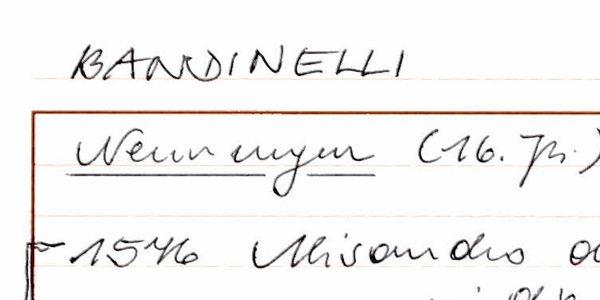 BANDINELLI
Nennungen (16. Jh.)
1546 Alisandro